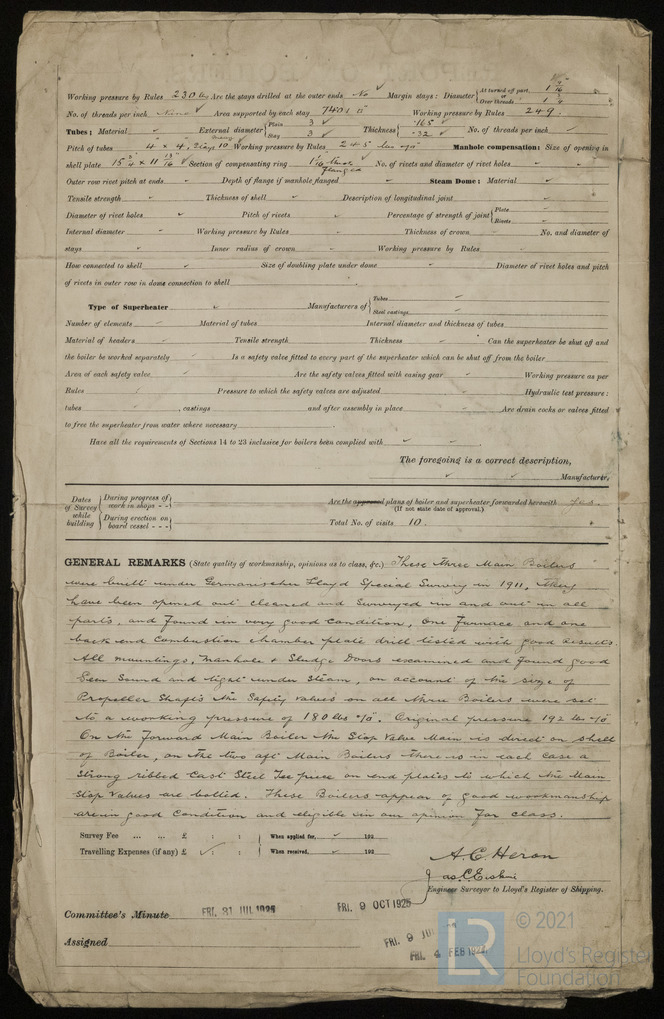 Working pressure by Rules 230 lbs Are the stays drilled at the outer ends No Margin stays: Diameter { At turned off part, 1 9/16" or Over threads
No. of threads per inch Area supported by each stay Working pressure by Rules 249.
Tubes: Material External diameter { Plain 3 Stay 3 Thickness { .165 .32 No. of threads per inch
Pitch of tubes 4 × 4, Working pressure by Rules 245 lbs Manhole compensation: Size of opening in
shell plate 15 3/4 × 11 13/16 Section of compensating ring No. of rivets and diameter of rivet holes
flanged
Outer row rivet pitch at ends Depth of flange if manhole flanged Steam Dome: Material
Tensile strength Thickness of shell Description of longitudinal joint
Diameter of rivet holes Pitch of rivets Percentage of strength of joint { Plate Rivets
Internal diameter Working pressure by Rules Thickness of crown No. and diameter of
stays Inner radius of crown Working pressure by Rules
How connected to shell Size of doubling plate under dome Diameter of rivet holes and pitch
of rivets in outer row in dome connection to shell
Type of Superheater Manufacturers of { Tubes Steel castings
Number of elements Material of tubes Internal diameter and thickness of tubes
Material of headers Tensile strength Thickness Can the superheater be shut off and
the boiler be worked separately Is a safety valve fitted to every part of the superheater which can be shut off from the boiler
Area of each safety valve Are the safety valves fitted with easing gear Working pressure as per
Rules Pressure to which the safety valves are adjusted Hydraulic test pressure:
tubes , castings and after assembly in place Are drain cocks or valves fitted
to free the superheater from water where necessary
Have all the requirements of Sections 14 to 23 inclusive for boilers been complied with
The foregoing is a correct description,
Manufacturer.
Dates of Survey while building { During progress of work in shops - - During erection on board vessel - - -
Are the approved plans of boiler and superheater forwarded herewith Yes.
(If not state date of approval.)
Total No. of visits 10.
GENERAL REMARKS (State quality of workmanship, opinions as to class, &c.) These three Main Boilers
were built under Germanischer Lloyd Special Survey in 1911, they
have been opened out cleaned and Surveyed in and out in all
parts, and found in very good condition, One Furnace and one
back end Combustion chamber plate drill tested with good results.
All mountings, Manhole & Sludge Doors examined and found good
Seen Sound and tight under steam, on account of the size of
Propeller Shafts the Safety Valves on all three Boilers were set
to a working pressure of 180 lbs. Original pressure 192 lbs
On the Forward Main Boiler the Stop Valve Main is direct on shell
of Boiler, on the two aft Main Boilers there is in each case a
Strong ribbed Cast Steel Tee piece on end plates to which the Main
Stop Valves are bolted. These Boilers appear of good workmanship
are in good Condition and eligible in our opinion for class.
Survey Fee ... ... £ : : When applied for, 192
Travelling Expenses (if any) £ : : When received, 192
A. C. Heron
Jas. C. Erskine
Engineer Surveyor to Lloyd's Register of Shipping.
Committee's Minute FRI. 31 JUL 1925 FRI. 9 OCT 1925
Assigned FRI. 9 JUL
FRI. 4 FEB 1927
LR © 2021
Lloyd's Register
Foundation